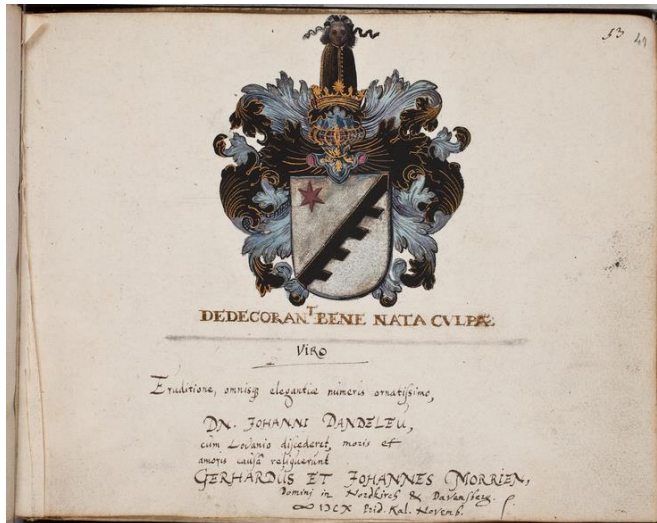 53 49
DEDECORANT BENE NATA CVLPÆ
VIRO
Eruditione, omnisq; elegantiæ numeris ornatissimo,
DN. JOHANNI DANDELEU,
cùm Lovanio discederet, moris et
amoris causâ reliquerunt
GERHARDUS ET JOHANNES MORRIEN,
Domini in Nordkirch & Davensberg.
Prid. Kal. Novemb.